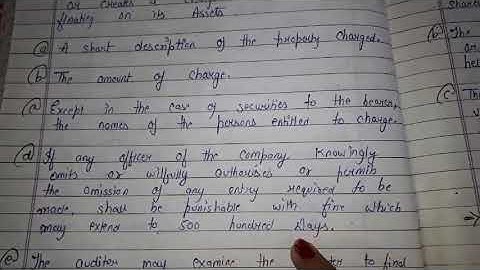 or creates a
floating on its Assets
(a) A short description of the property charged.
(b) The amount of charge.
(c) Except in the case of securities to the bearer,
the names of the persons entitled to charge.
(d) If any officer of the company knowingly
omits or willfully authorises or permits
the omission of any entry required to be
made, shall be punishable with fine which
may extend to 500 hundred Days.
(e) The auditor may examine the to find
(b)
The
an
(c) Th